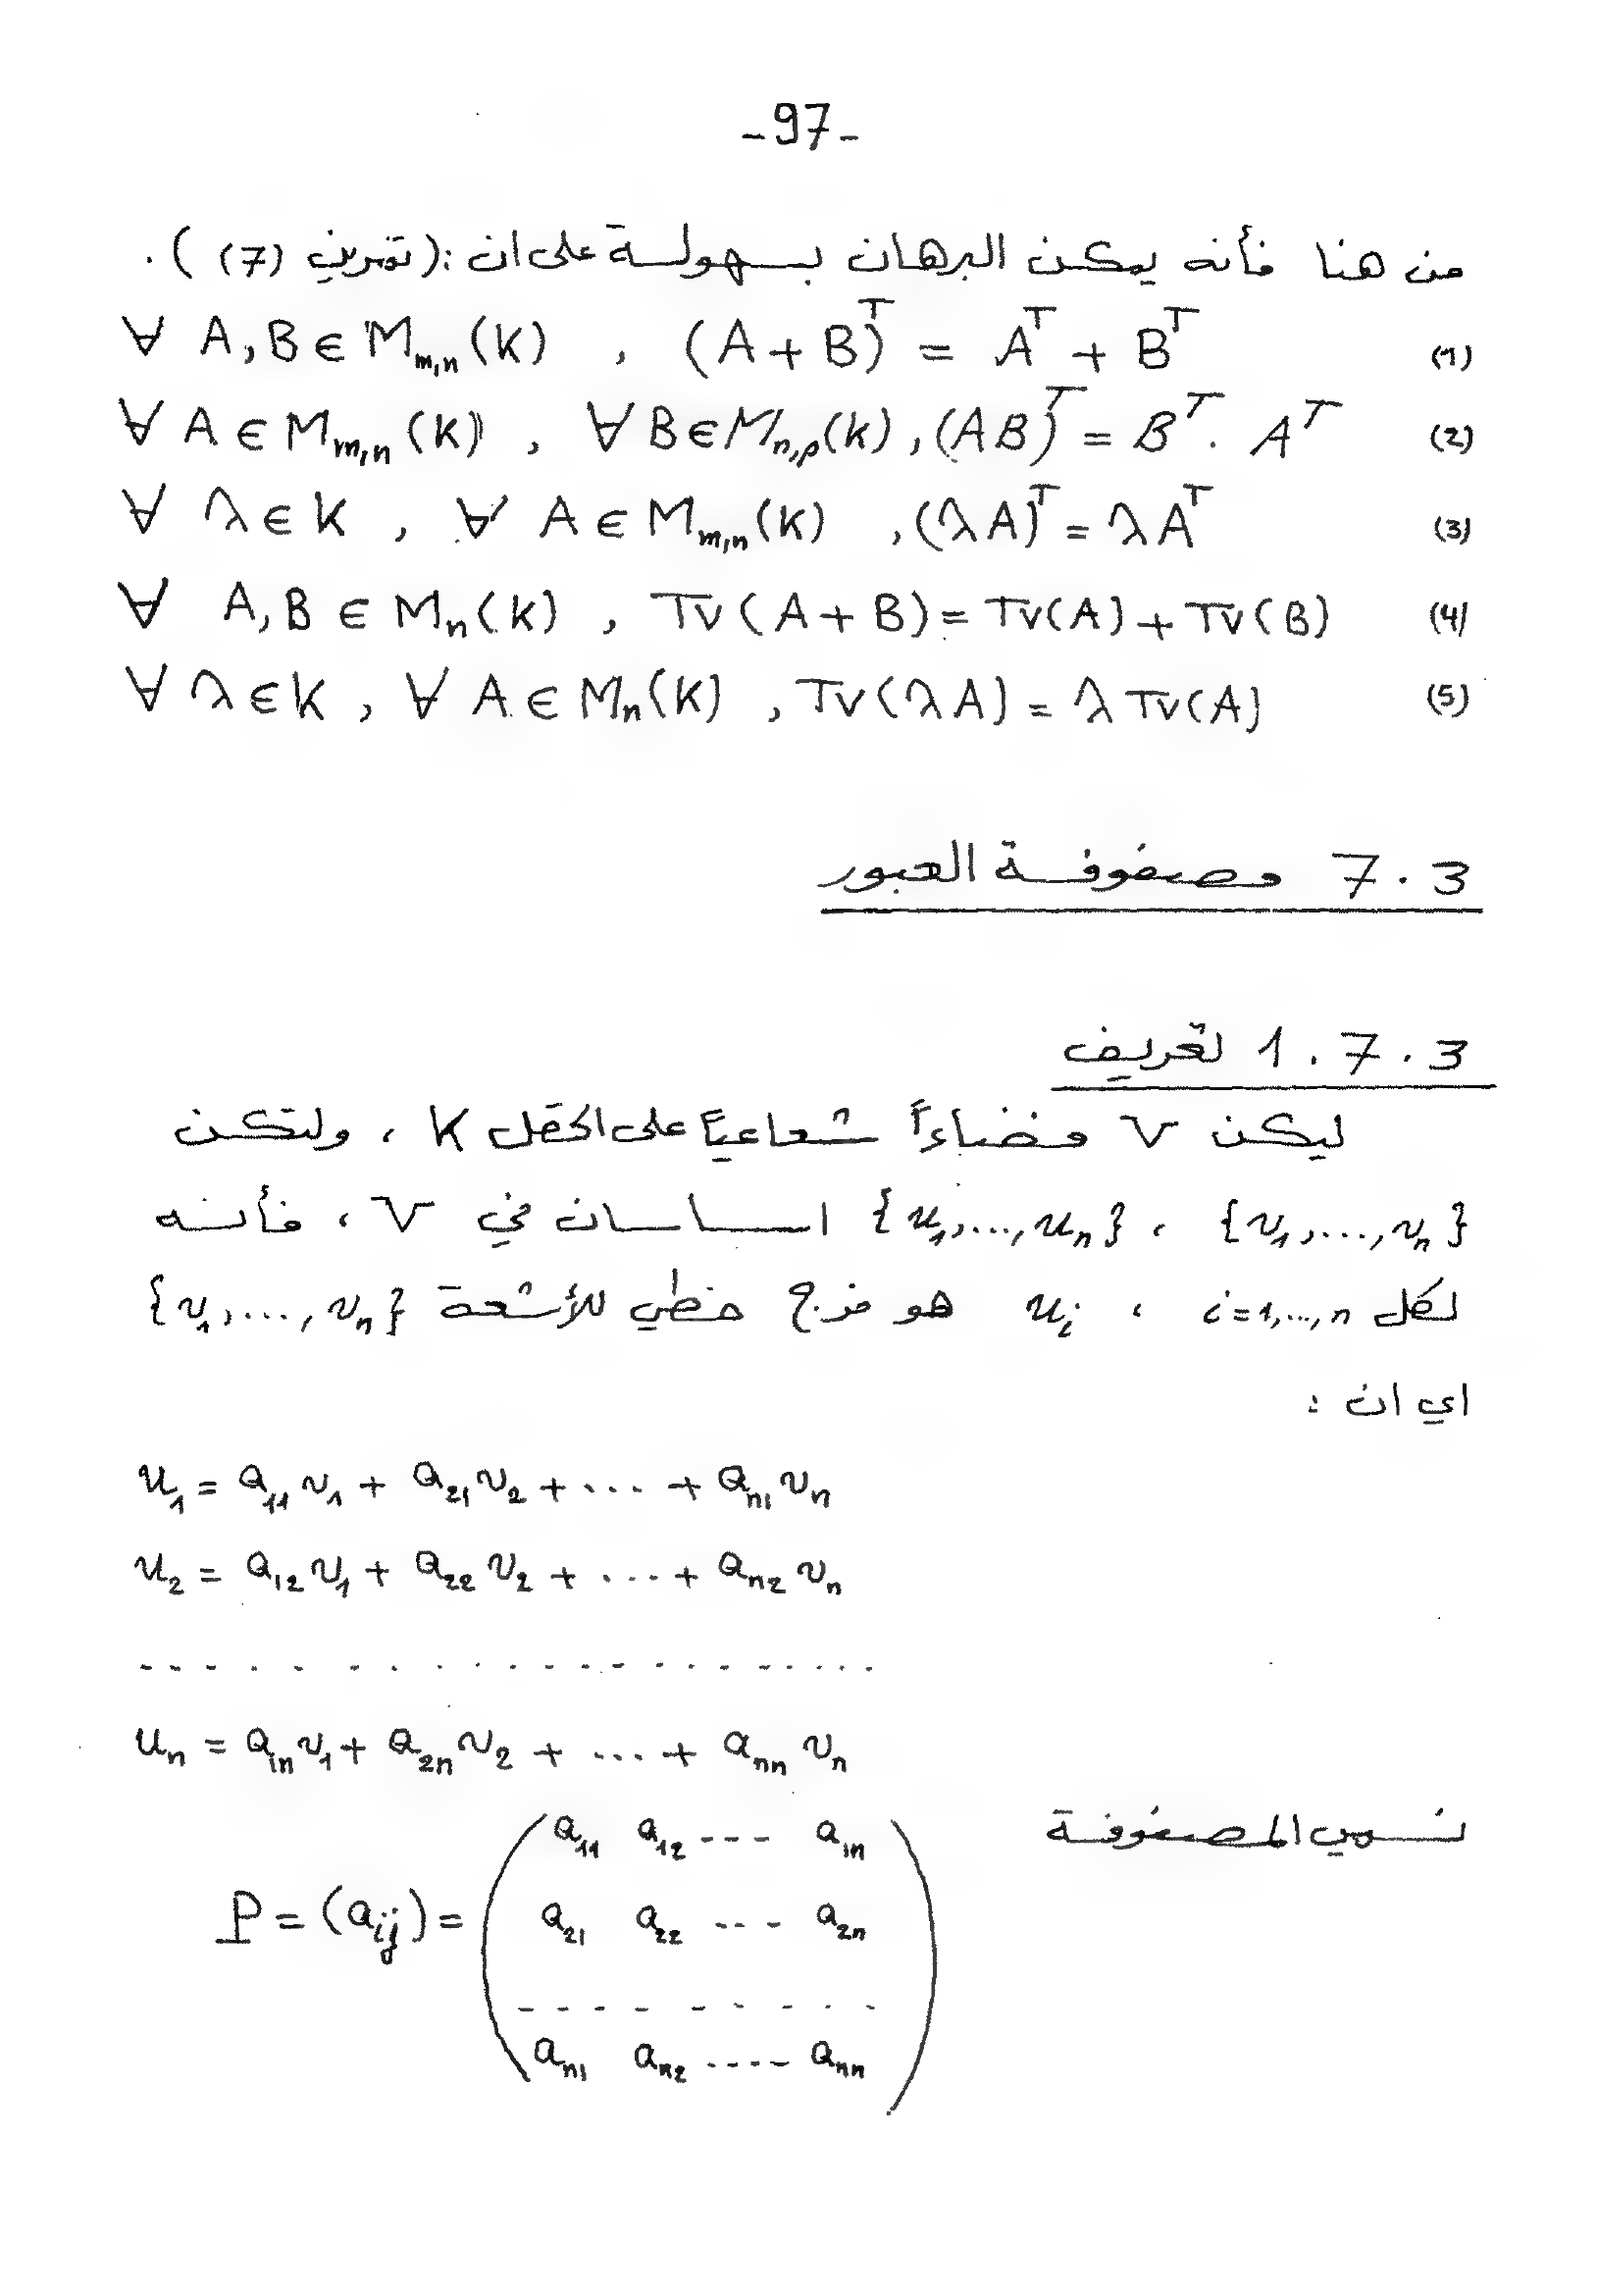 -97-
من هنا فأنه يمكن البرهان بسهولة على ان :(تمرين (7) ) .
∀ A,B ∈ M_{m,n}(K) , (A+B)^T = A^T + B^T (1)
∀ A ∈ M_{m,n}(K) , ∀ B ∈ M_{n,p}(K) , (AB)^T = B^T . A^T (2)
∀ λ ∈ K , ∀ A ∈ M_{m,n}(K) , (λA)^T = λA^T (3)
∀ A,B ∈ M_n(K) , Tr(A+B) = Tr(A) + Tr(B) (4)
∀ λ ∈ K , ∀ A ∈ M_n(K) , Tr(λA) = λ Tr(A) (5)
3 . 7 مصفوفة العبور
3 . 7 . 1 تعريف
ليكن V فضاءاً شعاعياً على الحقل K ، ولتكن
{v_1,...,v_n} ، {u_1,...,u_n} اساسان في V ، فأنه
لكل i=1,...,n ، u_i هو مزج خطي للأشعة {v_1,...,v_n}
اي ان :
u_1 = a_{11} v_1 + a_{21} v_2 + ... + a_{n1} v_n
u_2 = a_{12} v_1 + a_{22} v_2 + ... + a_{n2} v_n
- - - - - - - - - - - - - - - - - - -
u_n = a_{1n} v_1 + a_{2n} v_2 + ... + a_{nn} v_n
نسمي المصفوفة
P = (a_{ij}) = ( a_{11} a_{12} --- a_{1n}
a_{21} a_{22} --- a_{2n}
- - - - - - - - -
a_{n1} a_{n2} ---- a_{nn} )